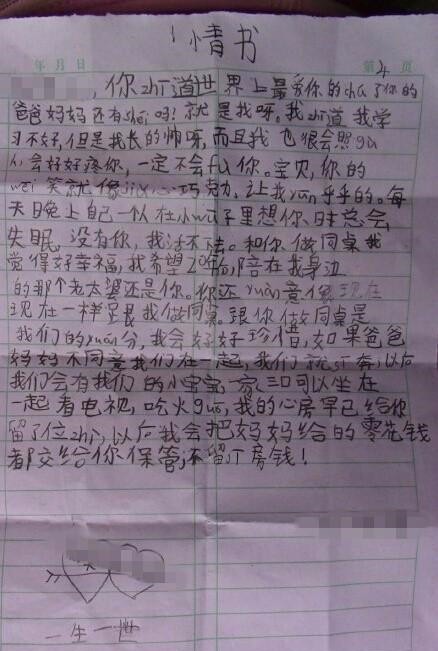 情书
年 月 日 第4页
,你zhī道世界上最爱你的chú了你的
爸爸妈妈还有shéi吗?就是我呀。我zhī道我学
习不好,但是我长的帅呀,而且我也很会照gù
人,会好好疼你,一定不会fù你。宝贝,你的
wēi笑就像jiā心巧克力,让我yūn乎乎的。每
天晚上自己一个人在小wū子里想你,时总会
失眠,没有你,我活不下去。和你做同桌我
觉得好幸福,我希望20年后,陪在我身边
的那个老太婆还是你。你还yuàn意像现在
现在一样跟我做同桌。跟你做同桌是
我们的yuán分,我会好好珍惜,如果爸爸
妈妈不同意我们在一起,我们就 奔,以后
我们会有我们的小宝宝,一家三口可以坐在
一起看电视,吃火guō,我的心房早已给你
留了位zhi,以后我会把妈妈给的零花钱
都交给你保管,不留 房钱!
一生一世